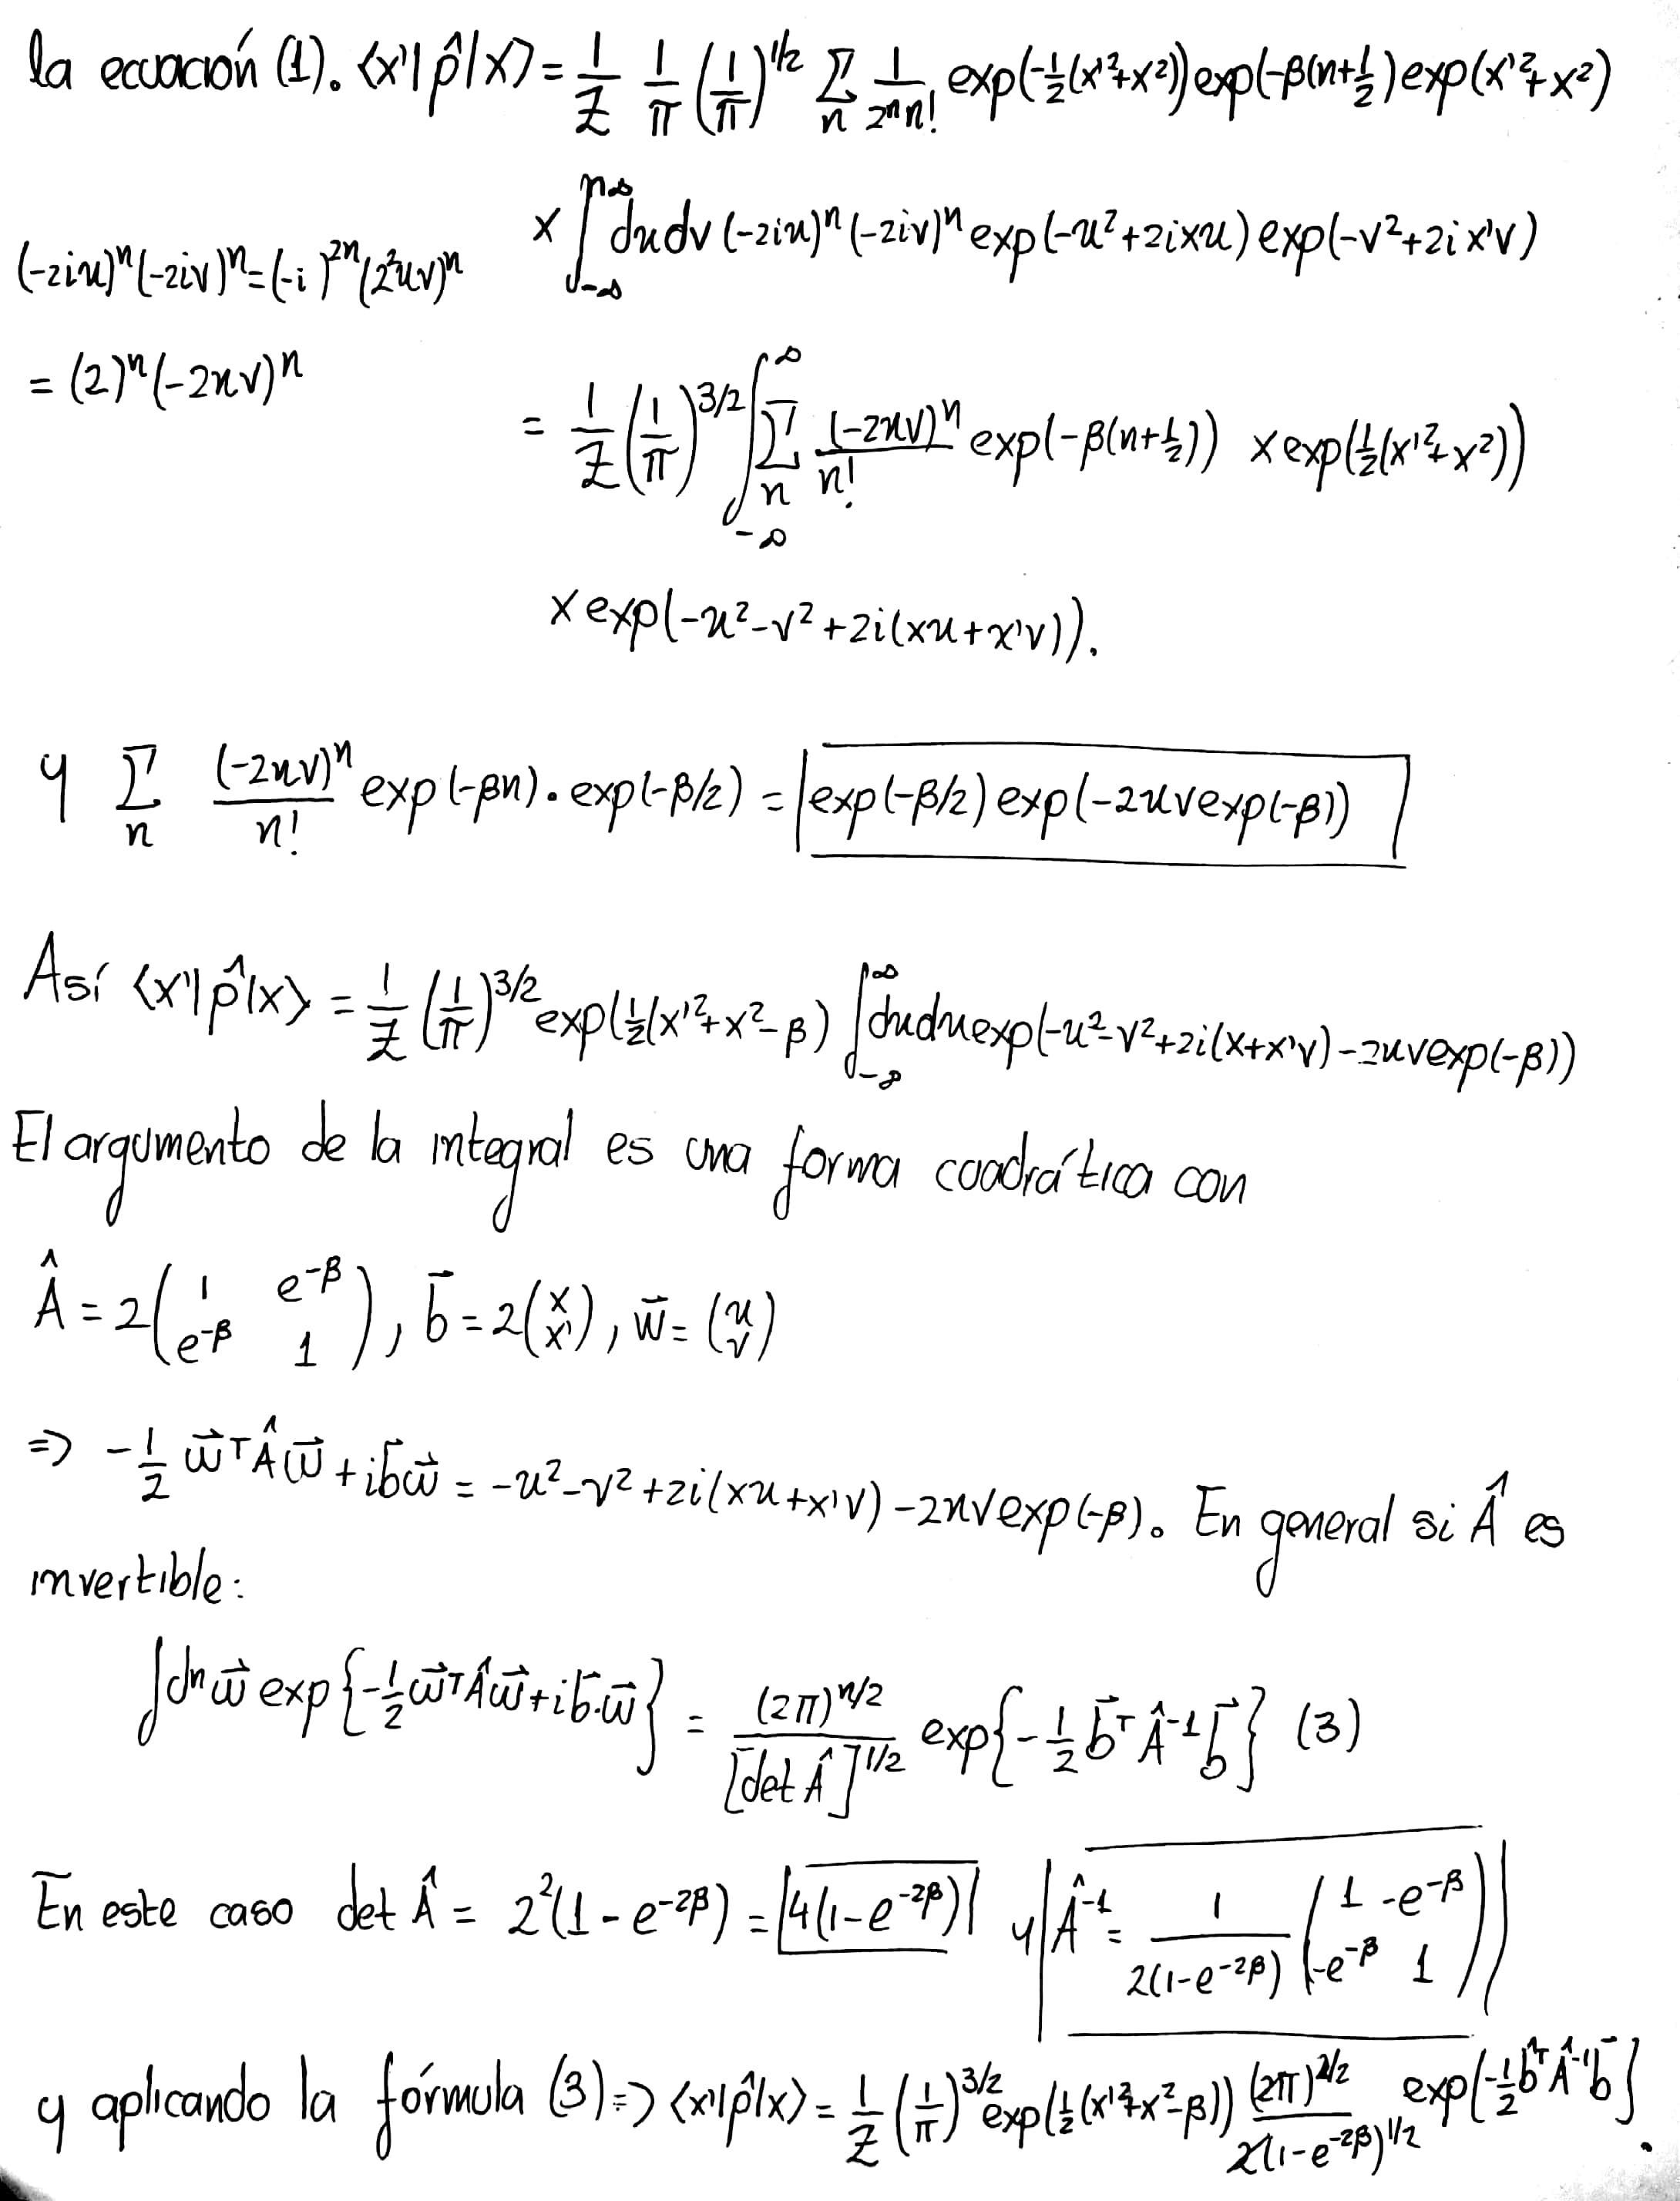 la ecuación (1). ⟨x'|ρ̂|x⟩ = 1/Z 1/π (1/π)^{1/2} Σ_n 1/(2^n n!) exp(-1/2(x'²+x²)) exp(-β(n+1/2) exp(x'²+x²)
x ∫_{-∞}^{∞} dudv (-2iu)^n (-2iv)^n exp(-u²+2ixu) exp(-v²+2ix'v)
(-2iu)^n (-2iv)^n = (-i)^{2n} (2²uv)^n
= (2)^n (-2uv)^n
= 1/Z (1/π)^{3/2} ∫_{-∞}^{∞} Σ_n (-2uv)^n/n! exp(-β(n+1/2)) x exp(1/2(x'²+x²))
x exp(-u²-v²+2i(xu+x'v)).
y Σ_n (-2uv)^n/n! exp(-βn)·exp(-β/2) = exp(-β/2) exp(-2uvexp(-β))
Así ⟨x'|ρ̂|x⟩ = 1/Z (1/π)^{3/2} exp(1/2(x'²+x²-β) ∫_{-∞}^{∞} dudu exp(-u²-v²+2i(x+x'v)-2uvexp(-β))
El argumento de la integral es una forma cuadrática con
Â = 2(1 e^{-β} ; e^{-β} 1), b⃗ = 2(x ; x'), w⃗ = (u ; v)
⇒ -1/2 w⃗^T Â w⃗ + ib⃗w⃗ = -u²-v²+2i(xu+x'v)-2uvexp(-β). En general si Â es
invertible:
∫d^n w⃗ exp{-1/2 w⃗^T Â w⃗ + ib⃗·w⃗} = (2π)^{n/2}/[det Â]^{1/2} exp{-1/2 b⃗^T Â^{-1} b⃗} (3)
En este caso det Â = 2²(1-e^{-2β}) = 4(1-e^{-2β}) y Â^{-1} = 1/(2(1-e^{-2β})) (1 -e^{-β} ; -e^{-β} 1)
y aplicando la fórmula (3) ⇒ ⟨x'|ρ̂|x⟩ = 1/Z (1/π)^{3/2} exp(1/2(x'²+x²-β)) (2π)^{2/2}/(2(1-e^{-2β})^{1/2}) exp{-1/2 b⃗^T Â^{-1} b⃗}.